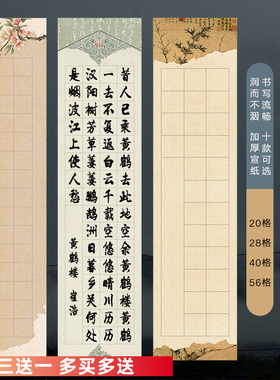 书写流畅 十款可选
润而不洇 加厚宣纸
20格
28格
40格
56格
昔人已乘黄鹤去此地空余黄鹤楼黄鹤
一去不复返白云千载空悠悠晴川历历
汉阳树芳草萋萋鹦鹉洲日暮乡关何处
是烟波江上使人愁
黄鹤楼 崔浩
三送一 多买多送